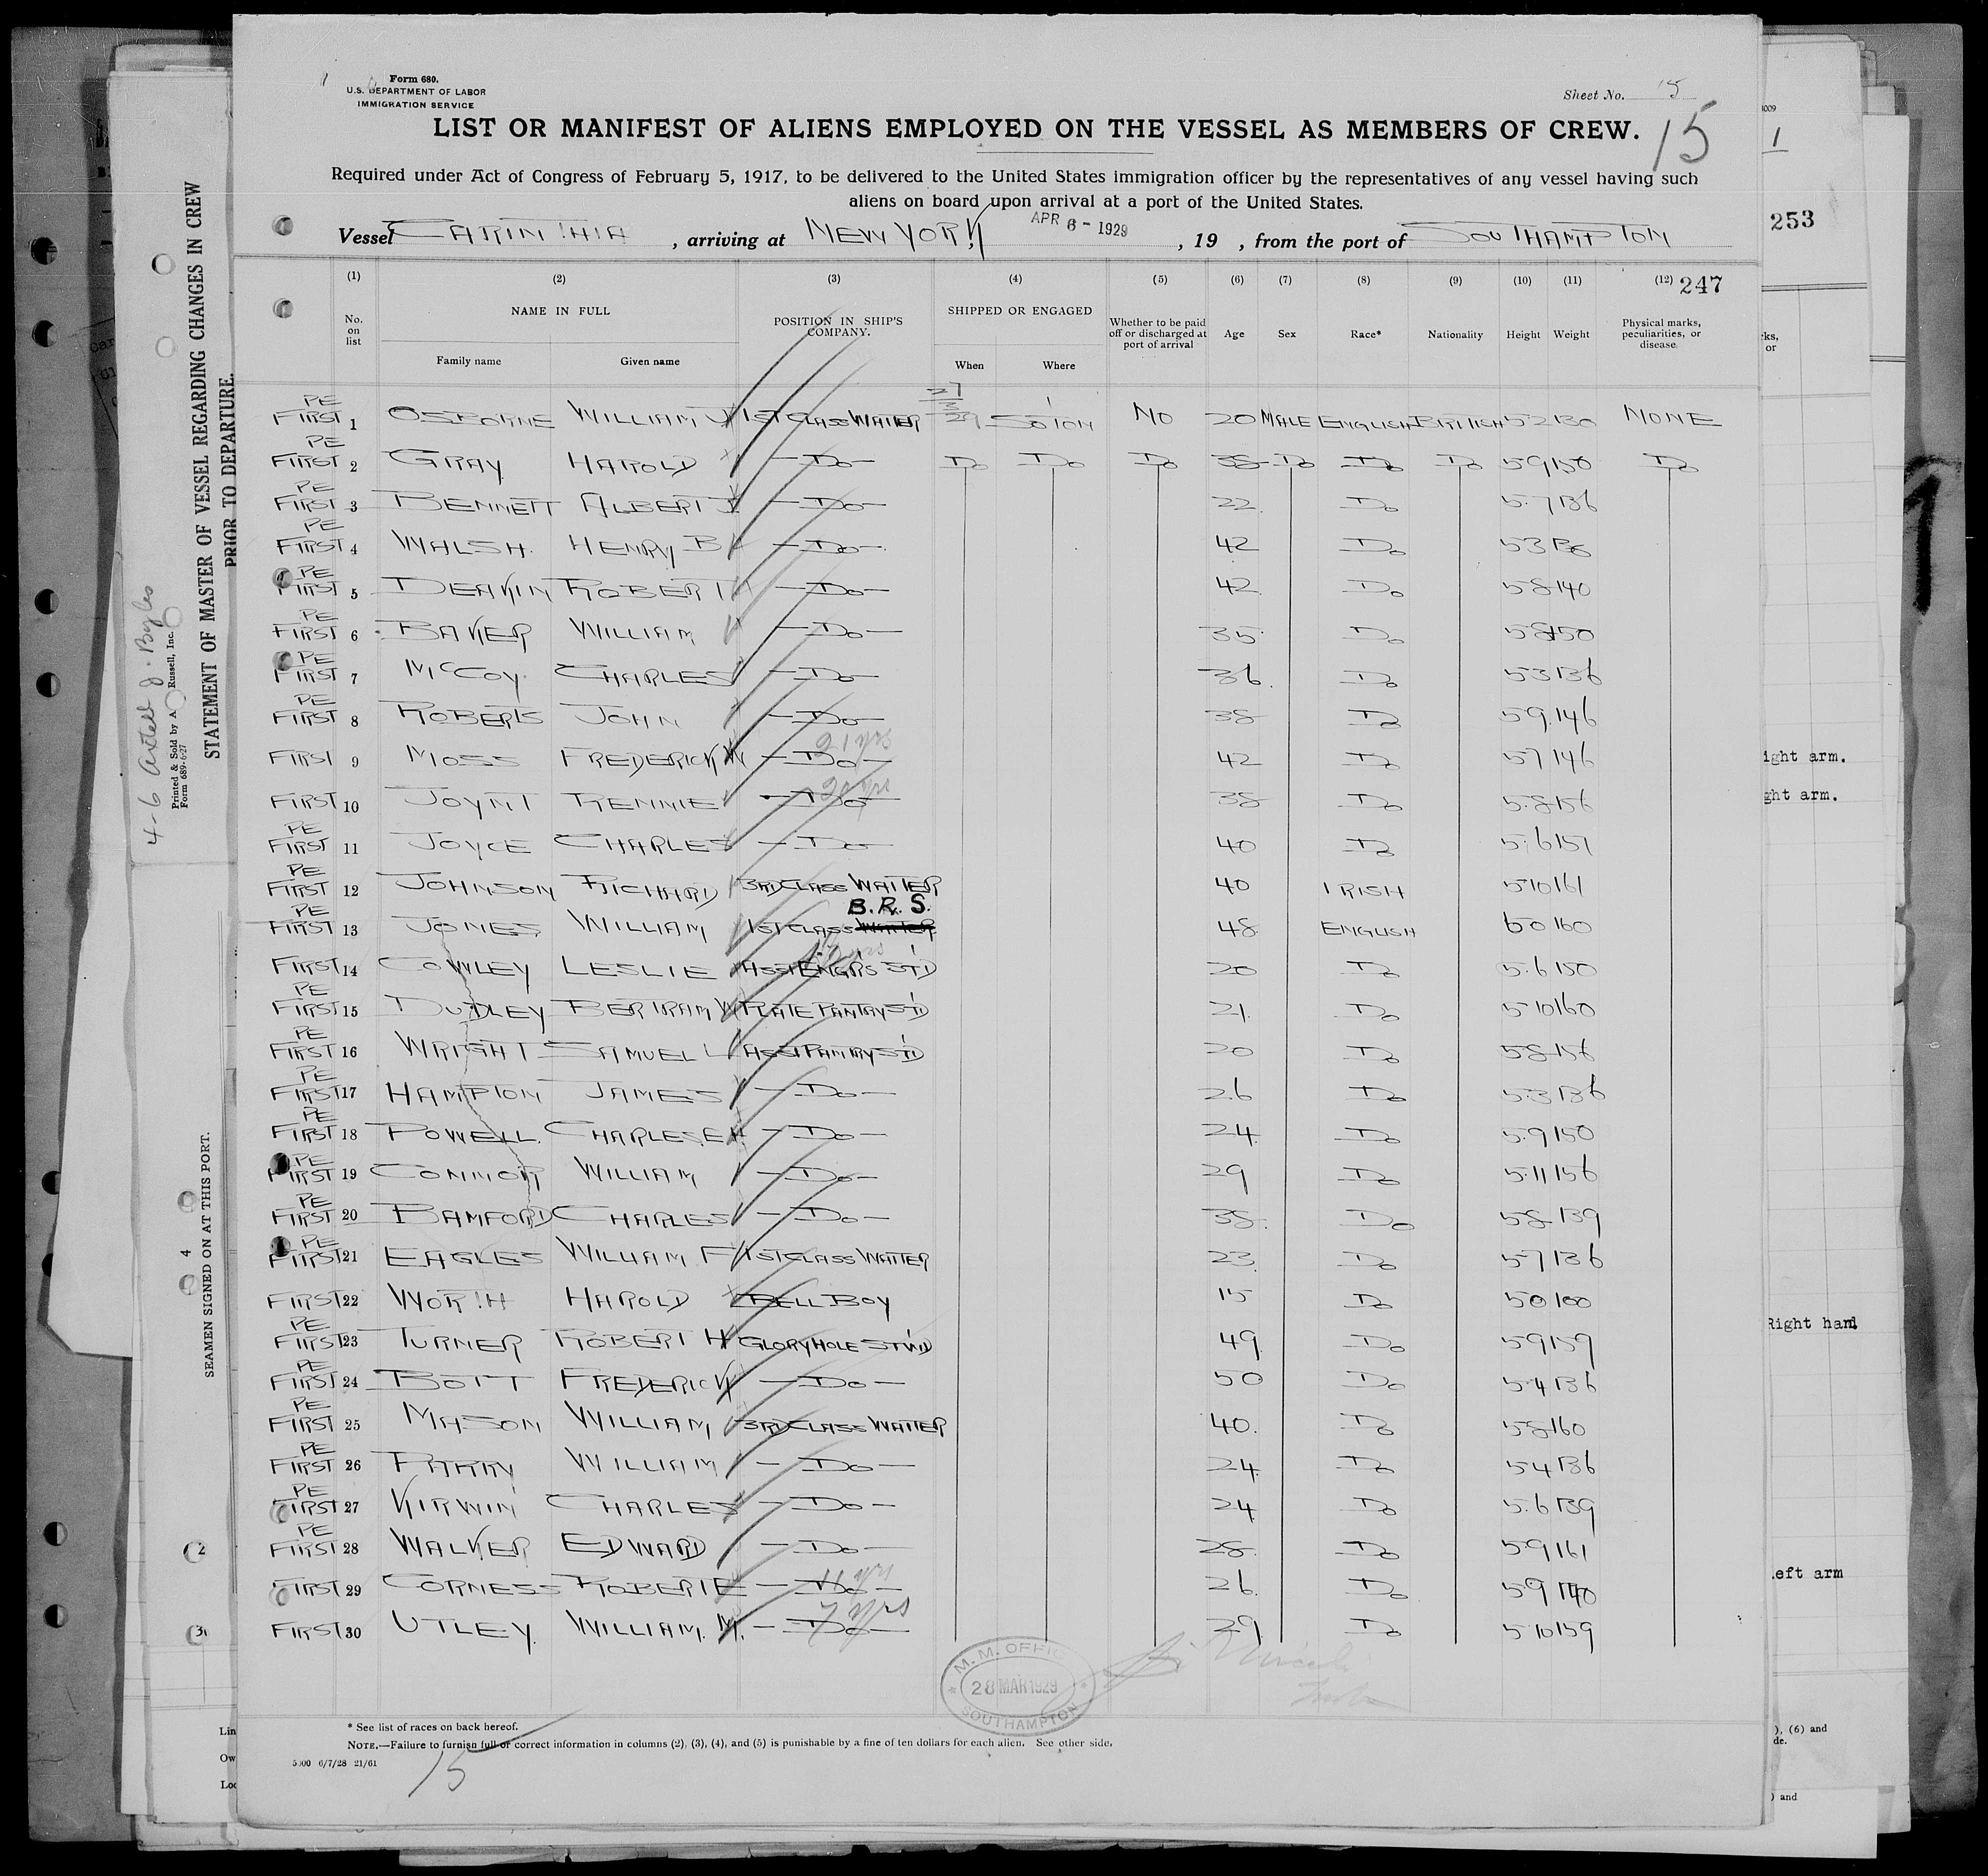 Form 680.
U.S. DEPARTMENT OF LABOR
IMMIGRATION SERVICE
Sheet No. 15
15
LIST OR MANIFEST OF ALIENS EMPLOYED ON THE VESSEL AS MEMBERS OF CREW.
Required under Act of Congress of February 5, 1917, to be delivered to the United States immigration officer by the representatives of any vessel having such
aliens on board upon arrival at a port of the United States.
Vessel CARINTHIA, arriving at NEW YORK APR 6 - 1929, 19 , from the port of SOUTHAMPTON
(1) (2) (3) (4) (5) (6) (7) (8) (9) (10) (11) (12) 247
No. on list NAME IN FULL Family name Given name POSITION IN SHIP'S COMPANY. SHIPPED OR ENGAGED When Where Whether to be paid off or discharged at port of arrival Age Sex Race* Nationality Height Weight Physical marks, peculiarities, or disease.
PE FIRST 1 OSBORNE WILLIAM J 1ST CLASS WAITER 27/3/29 SOTON NO 20 MALE ENGLISH BRITISH 5 2 130 NONE
PE FIRST 2 GRAY HAROLD - DO - DO DO DO 38 DO DO DO 5 9 150 DO
PE FIRST 3 BENNETT ALBERT J - DO - 22 DO 5.7 136
PE FIRST 4 WALSH HENRY B - DO - 42 DO 5 3 136
PE FIRST 5 DEAKIN ROBERT - DO - 42 DO 5 8 140
PE FIRST 6 BAKER WILLIAM - DO - 35 DO 5 8 150
PE FIRST 7 McCOY CHARLES - DO - 36 DO 5 3 136
PE FIRST 8 ROBERTS JOHN - DO - 38 DO 5 9 146
FIRST 9 MOSS FREDERICK W - DO - 21 yrs 42 DO 5 7 146
FIRST 10 JOYNT RENNIE - DO - 20 yrs 38 DO 5.8 156
PE FIRST 11 JOYCE CHARLES - DO - 40 DO 5.6 151
PE FIRST 12 JOHNSON RICHARD 3RD CLASS WAITER 40 IRISH 5 10 161
PE FIRST 13 JONES WILLIAM 1ST CLASS WAITER B.R.S. 48 ENGLISH 6 0 160
FIRST 14 COWLEY LESLIE ASST ENGRS ST'D 20 DO 5.6 150
PE FIRST 15 DUDLEY BERTRAM W PLATE PANTRY ST'D 21 DO 5 10 160
PE FIRST 16 WRIGHT SAMUEL L ASST PANTRY ST'D 20 DO 5 8 156
PE FIRST 17 HAMPTON JAMES - DO - 26 DO 5.3 136
PE FIRST 18 POWELL CHARLES.E.H. - DO - 24 DO 5.9 150
PE FIRST 19 CONNOR WILLIAM - DO - 29 DO 5.11 156
PE FIRST 20 BAMFORD CHARLES - DO - 38 DO 5 8 139
PE FIRST 21 EAGLES WILLIAM F 1ST CLASS WAITER 23 DO 5 7 136
FIRST 22 WORTH HAROLD BELL BOY 15 DO 5 0 100
PE FIRST 23 TURNER ROBERT H GLORYHOLE STW'D 49 DO 5 9 159
PE FIRST 24 BOTT FREDERICK - DO - 50 DO 5.4 136
PE FIRST 25 MASON WILLIAM 3RD CLASS WAITER 40 DO 5 8 160
PE FIRST 26 PARRY WILLIAM - DO - 24 DO 5 4 136
PE FIRST 27 KIRWIN CHARLES - DO - 24 DO 5.6 139
PE FIRST 28 WALKER EDWARD - DO - 28 DO 5 9 161
FIRST 29 CORNESS ROBERT E - DO - 11 yrs 26 DO 5 9 140
FIRST 30 UTLEY WILLIAM. M. - DO - 7 yrs 29 DO 5 10 159
M. M. OFFICE
28 MAR 1929
SOUTHAMPTON
* See list of races on back hereof.
NOTE.—Failure to furnish full or correct information in columns (2), (3), (4), and (5) is punishable by a fine of ten dollars for each alien. See other side.
5000 6/7/28 21/61
15
STATEMENT OF MASTER OF VESSEL REGARDING CHANGES IN CREW
PRIOR TO DEPARTURE.
Printed & Sold by A. Russell, Inc.
Form 689-6-27
SEAMEN SIGNED ON AT THIS PORT.
4
1
253
ight arm.
ght arm.
Right hand
left arm
), (6) and
de.
) and